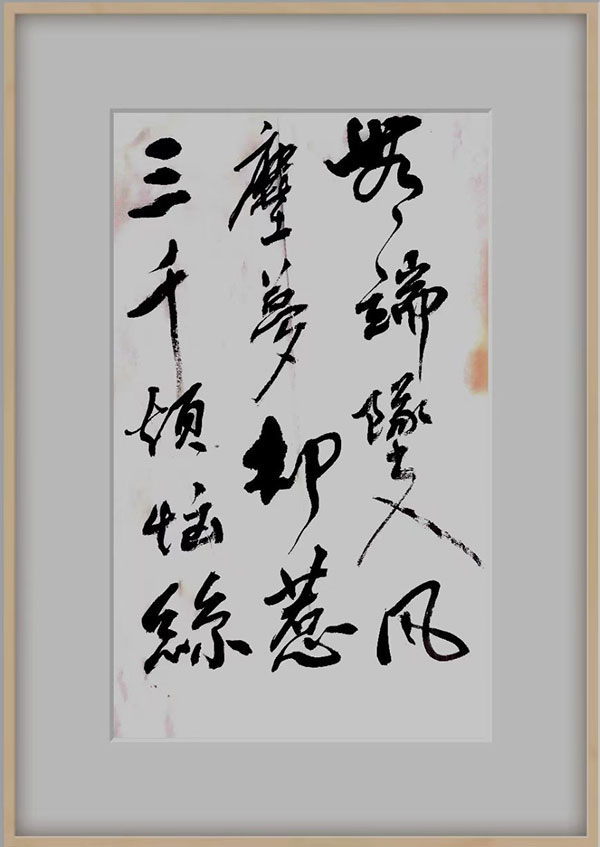 無端墜入風
塵夢却惹
三千煩惱絲